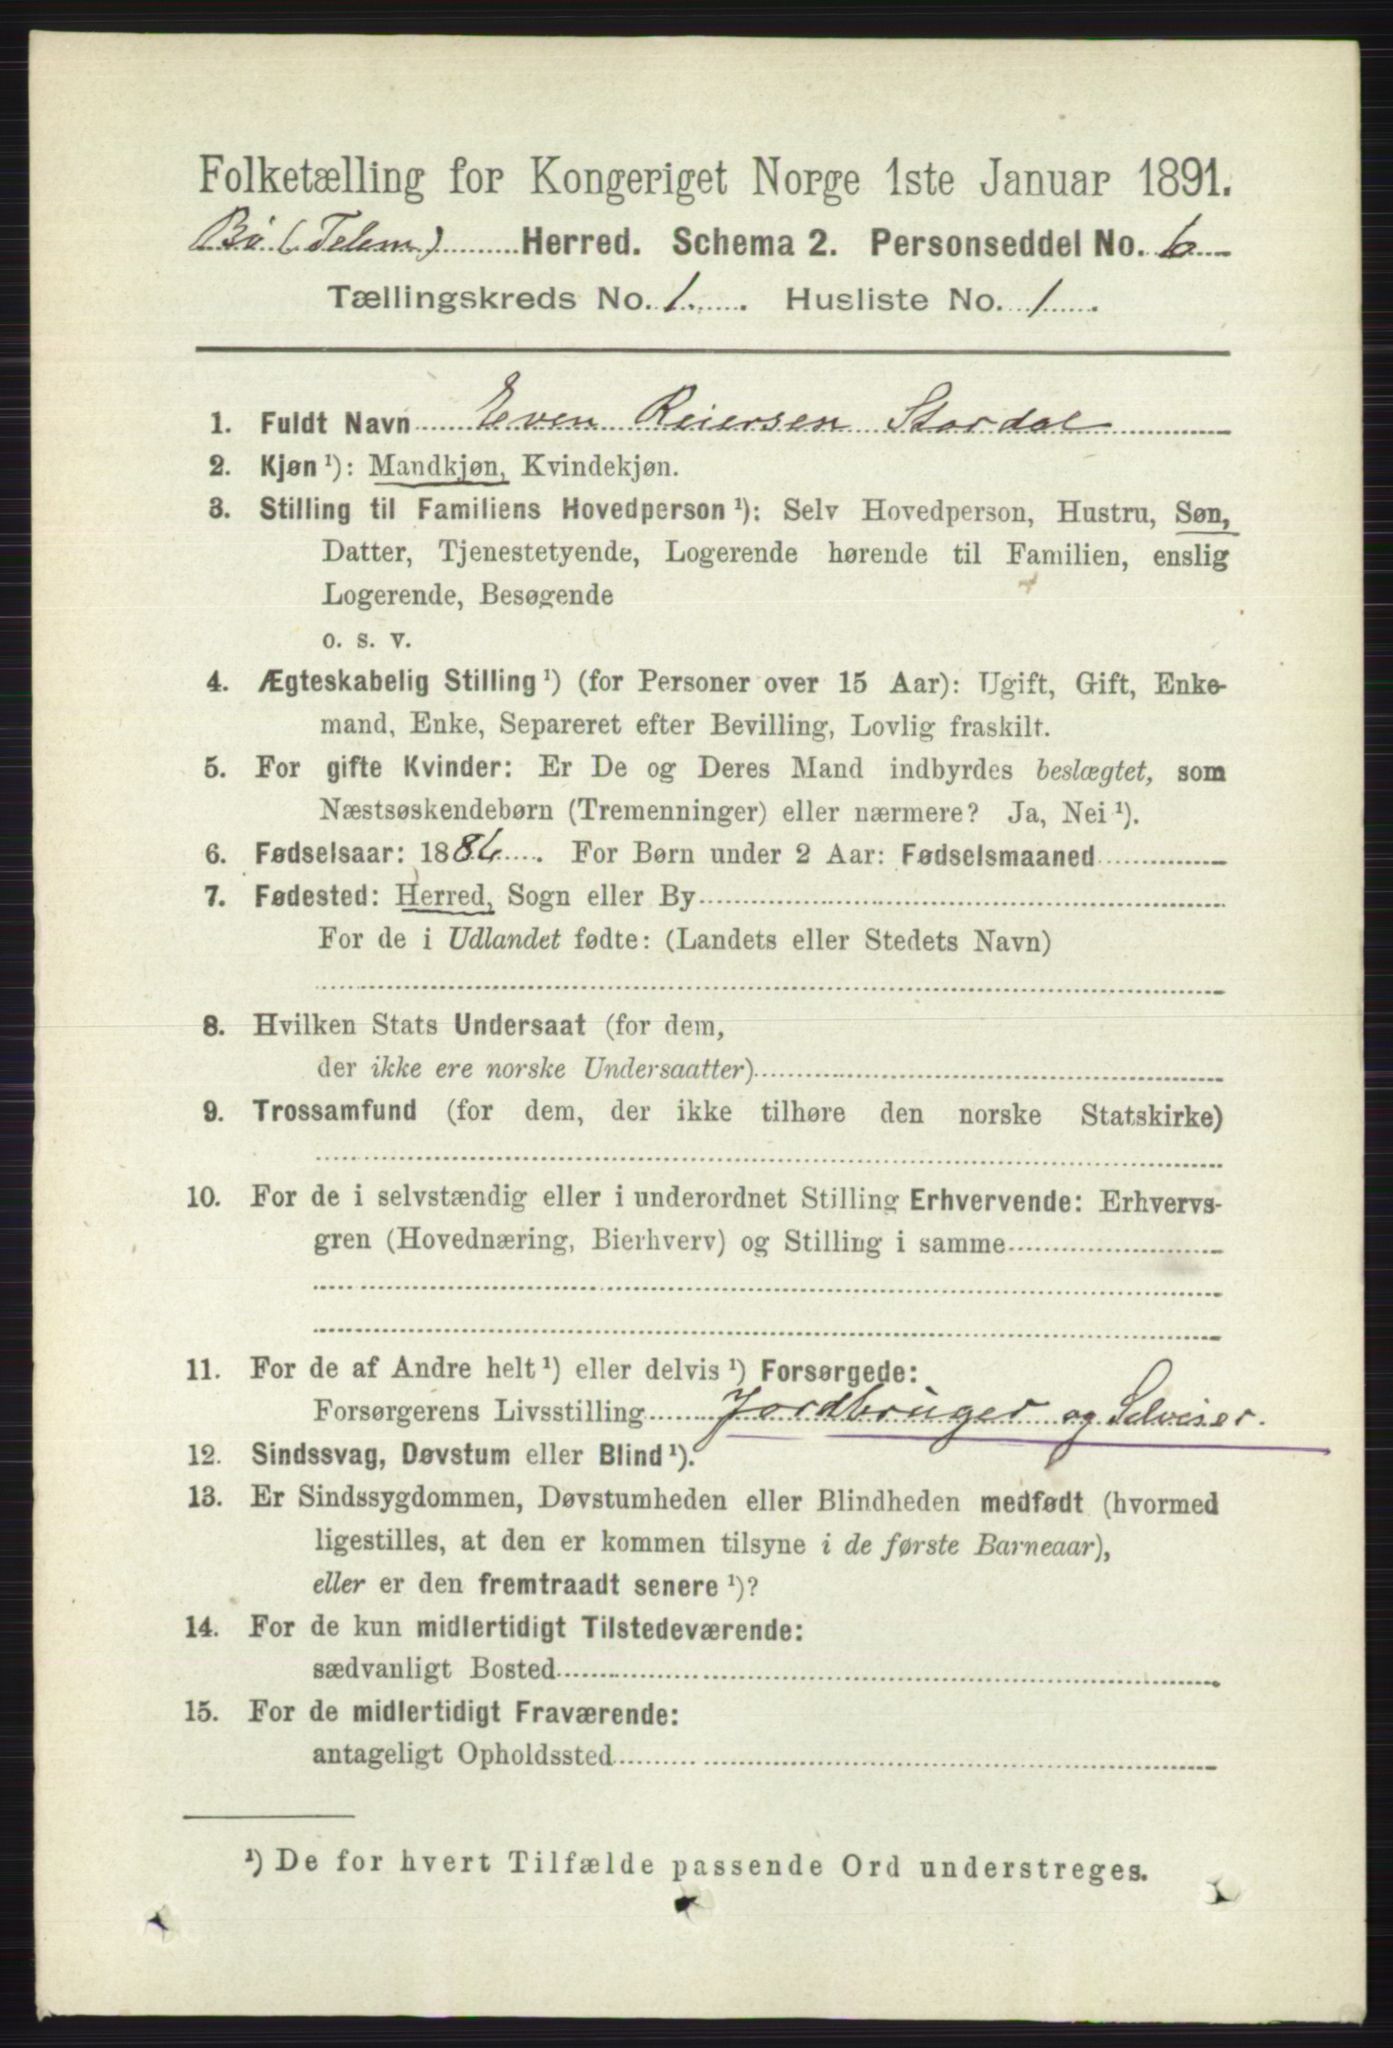 Folketælling for Kongeriget Norge 1ste Januar 1891.
Bø (Telem) Herred. Schema 2. Personseddel No. 6
Tællingskreds No. 1. Husliste No. 1.
1. Fuldt Navn Even Reiersen Stordal
2. Kjøn ¹): Mandkjøn, Kvindekjøn.
3. Stilling til Familiens Hovedperson ¹): Selv Hovedperson, Hustru, Søn,
Datter, Tjenestetyende, Logerende hørende til Familien, enslig
Logerende, Besøgende
o. s. v.
4. Ægteskabelig Stilling ¹) (for Personer over 15 Aar): Ugift, Gift, Enke-
mand, Enke, Separeret efter Bevilling, Lovlig fraskilt.
5. For gifte Kvinder: Er De og Deres Mand indbyrdes beslægtet, som
Næstsøskendebørn (Tremenninger) eller nærmere? Ja, Nei ¹).
6. Fødselsaar: 1886. For Børn under 2 Aar: Fødselsmaaned
7. Fødested: Herred, Sogn eller By
For de i Udlandet fødte: (Landets eller Stedets Navn)
8. Hvilken Stats Undersaat (for dem,
der ikke ere norske Undersaatter)
9. Trossamfund (for dem, der ikke tilhøre den norske Statskirke)
10. For de i selvstændig eller i underordnet Stilling Erhvervende: Erhvervs-
gren (Hovednæring, Bierhverv) og Stilling i samme
11. For de af Andre helt ¹) eller delvis ¹) Forsørgede:
Forsørgerens Livsstilling Jordbruger og Selveier.
12. Sindssvag, Døvstum eller Blind ¹).
13. Er Sindssygdommen, Døvstumheden eller Blindheden medfødt (hvormed
ligestilles, at den er kommen tilsyne i de første Barneaar),
eller er den fremtraadt senere ¹)?
14. For de kun midlertidigt Tilstedeværende:
sædvanligt Bosted
15. For de midlertidigt Fraværende:
antageligt Opholdssted
¹) De for hvert Tilfælde passende Ord understreges.